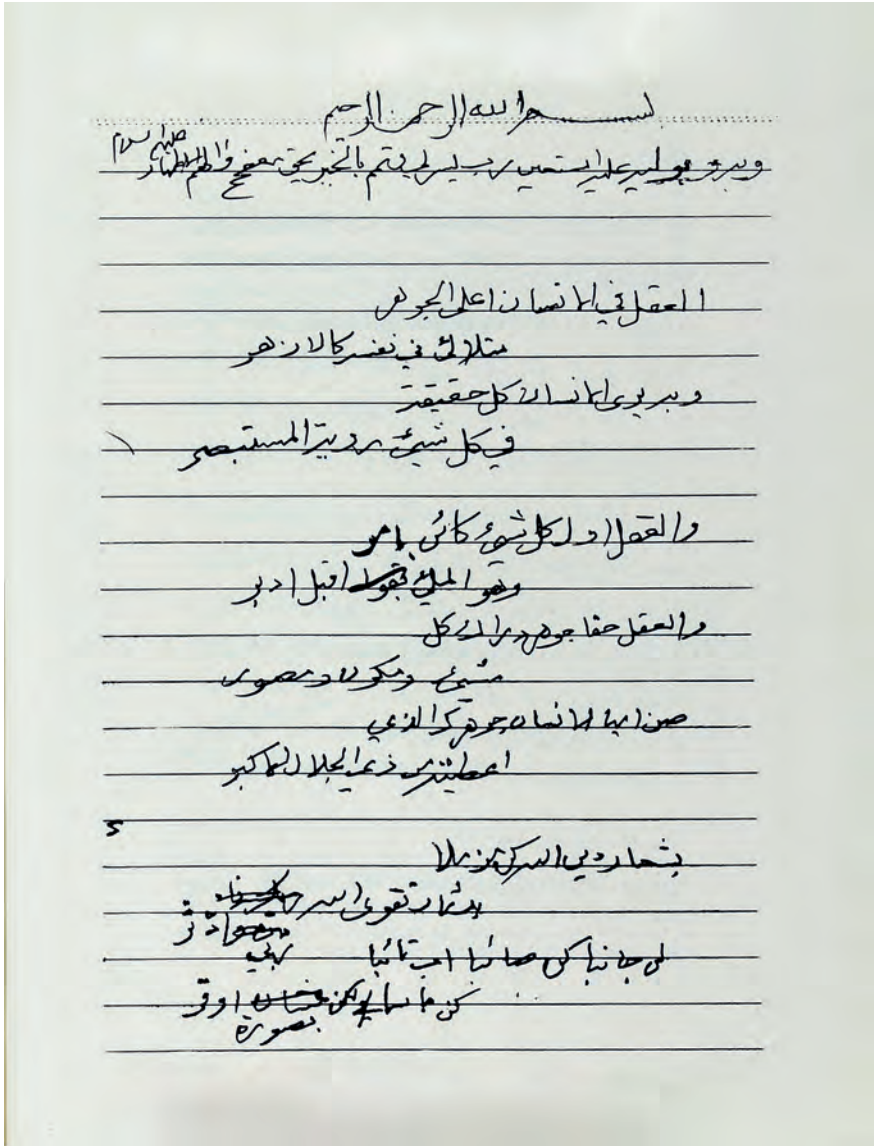 بسم الله الرحمن الرحيم
وبه وبوليه عليه استعين رب يسر لي وتمم بالخير بحق مصحح والهم الاطهار
عليهم السلام
العقل في الانسان اعلى الجوهر
متلالئ في نفسه كالازهر
وبه يرى الانسان كل حقيقة
في كل شيئ روية المستبصر
والعقل اول كل شيئ كائن بامر
وهو المليك اقبل ادبر
والعقل حقا جوهر دراك كل
مشيئ ومكون ومصور
صن ايها الانسان جوهرك الذي
اعطيته من ذي الجلال الاكبر
2
بشعار دين الله كن متزملا
بدثار تقوى الله ادثر
لي جانبا كن صائبا اب تائبا ربي
كن اوقر
بصورة